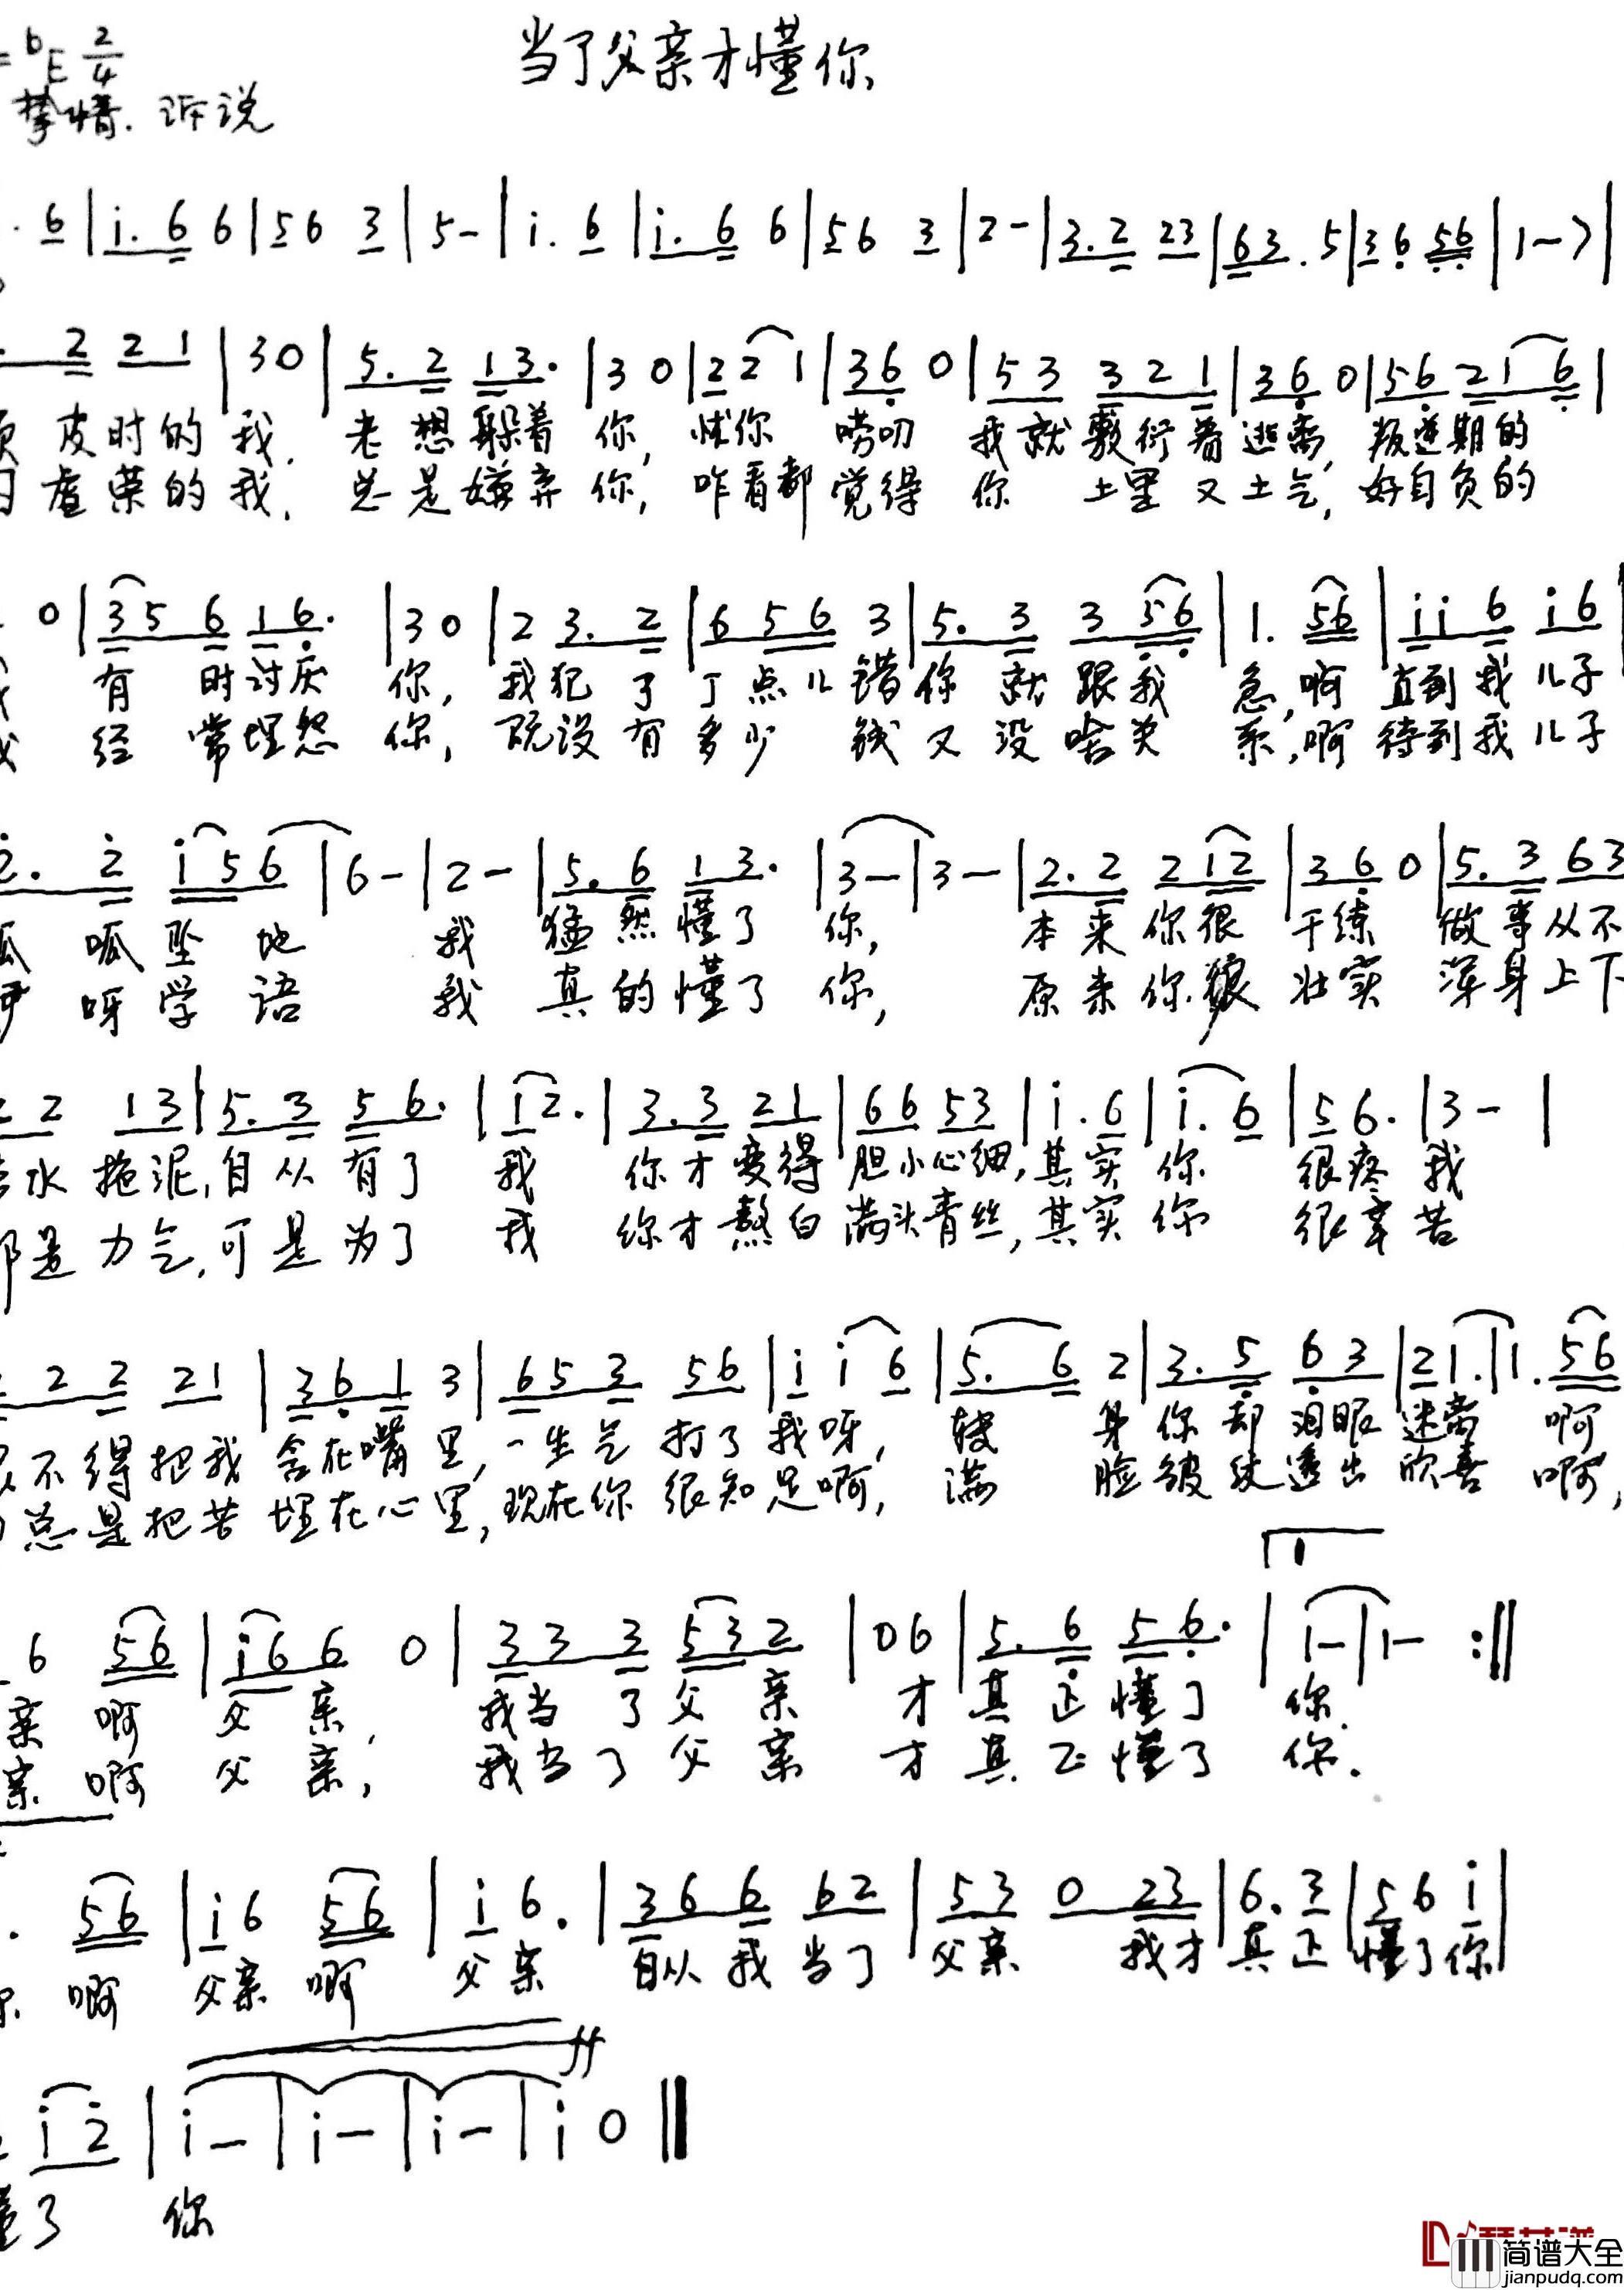 当了父亲才懂你
=bE 2/4
挚情.诉说
. 6 | i. 6 6 | 56 3 | 5 - | i. 6 | i. 6 6 | 56 3 | 2 - | 3. 2 23 | 63. 5 | 36 56 | 1 - > |
. 2 2 1 | 3 0 | 5. 2 13. | 3 0 | 22 1 | 36 0 | 53 321 | 36 0 | 56 216 |
皮时的我. 老想躲着你, 怯你唠叨 我就敷衍着逃离, 叛逆期的
虚荣的我. 总是嫌弃你, 咋看都觉得你 土里又土气, 好自负的
0 | 35 6 16. | 3 0 | 2 3. 2 | 656 3 | 5. 3 3 56 | 1. 56 | ii 6 i6 |
有时讨厌你, 我犯了丁点儿错你就跟我急, 啊 直到我儿子
经常埋怨你, 既没有多少钱又没啥关系, 啊 待到我儿子
2. 2 i56 | 6 - | 2 - | 5. 6 13. | 3 - | 3 - | 2. 2 212 | 36 0 | 5. 3 63
呱坠地 我猛然懂了你, 本来你很干练 做事从不
呀学语 我真的懂了你, 原来你很壮实 浑身上下
2 13 | 5. 3 56. | 12. | 3. 3 21 | 66 53 | i. 6 | i. 6 | 56. | 3 - |
水拖泥, 自从有了我 你才变得胆小心细, 其实你很疼我
是力气, 可是为了我 你才熬白满头青丝, 其实你很辛苦
2 2 21 | 361 3 | 653 56 | i i 6 | 5. 6 2 | 3. 5 63 | 21. | 1. 56
不得把我含在嘴里, 一生气打了我呀, 转身你却泪眼迷离 啊
总是把苦埋在心里, 现在你很知足啊, 满脸皱纹透出欣喜 啊,
1
6 56 | i66 0 | 33 3 532 | 06 | 5. 6 56. | 1 - | 1 - :||
亲 啊 父亲, 我当了父亲 才真正懂了你.
亲 啊 父亲, 我当了父亲 才真正懂了你.
. 56 | i6 56 | i 6. | 366 62 | 53 0 23 | 6. 3 | 56 i |
啊 父亲 啊 父亲 自从我当了父亲 我才真正懂了你
ff
i2 | i - | i - | i - | i 0 ||
了 你
简谱大全
jianpudq.com